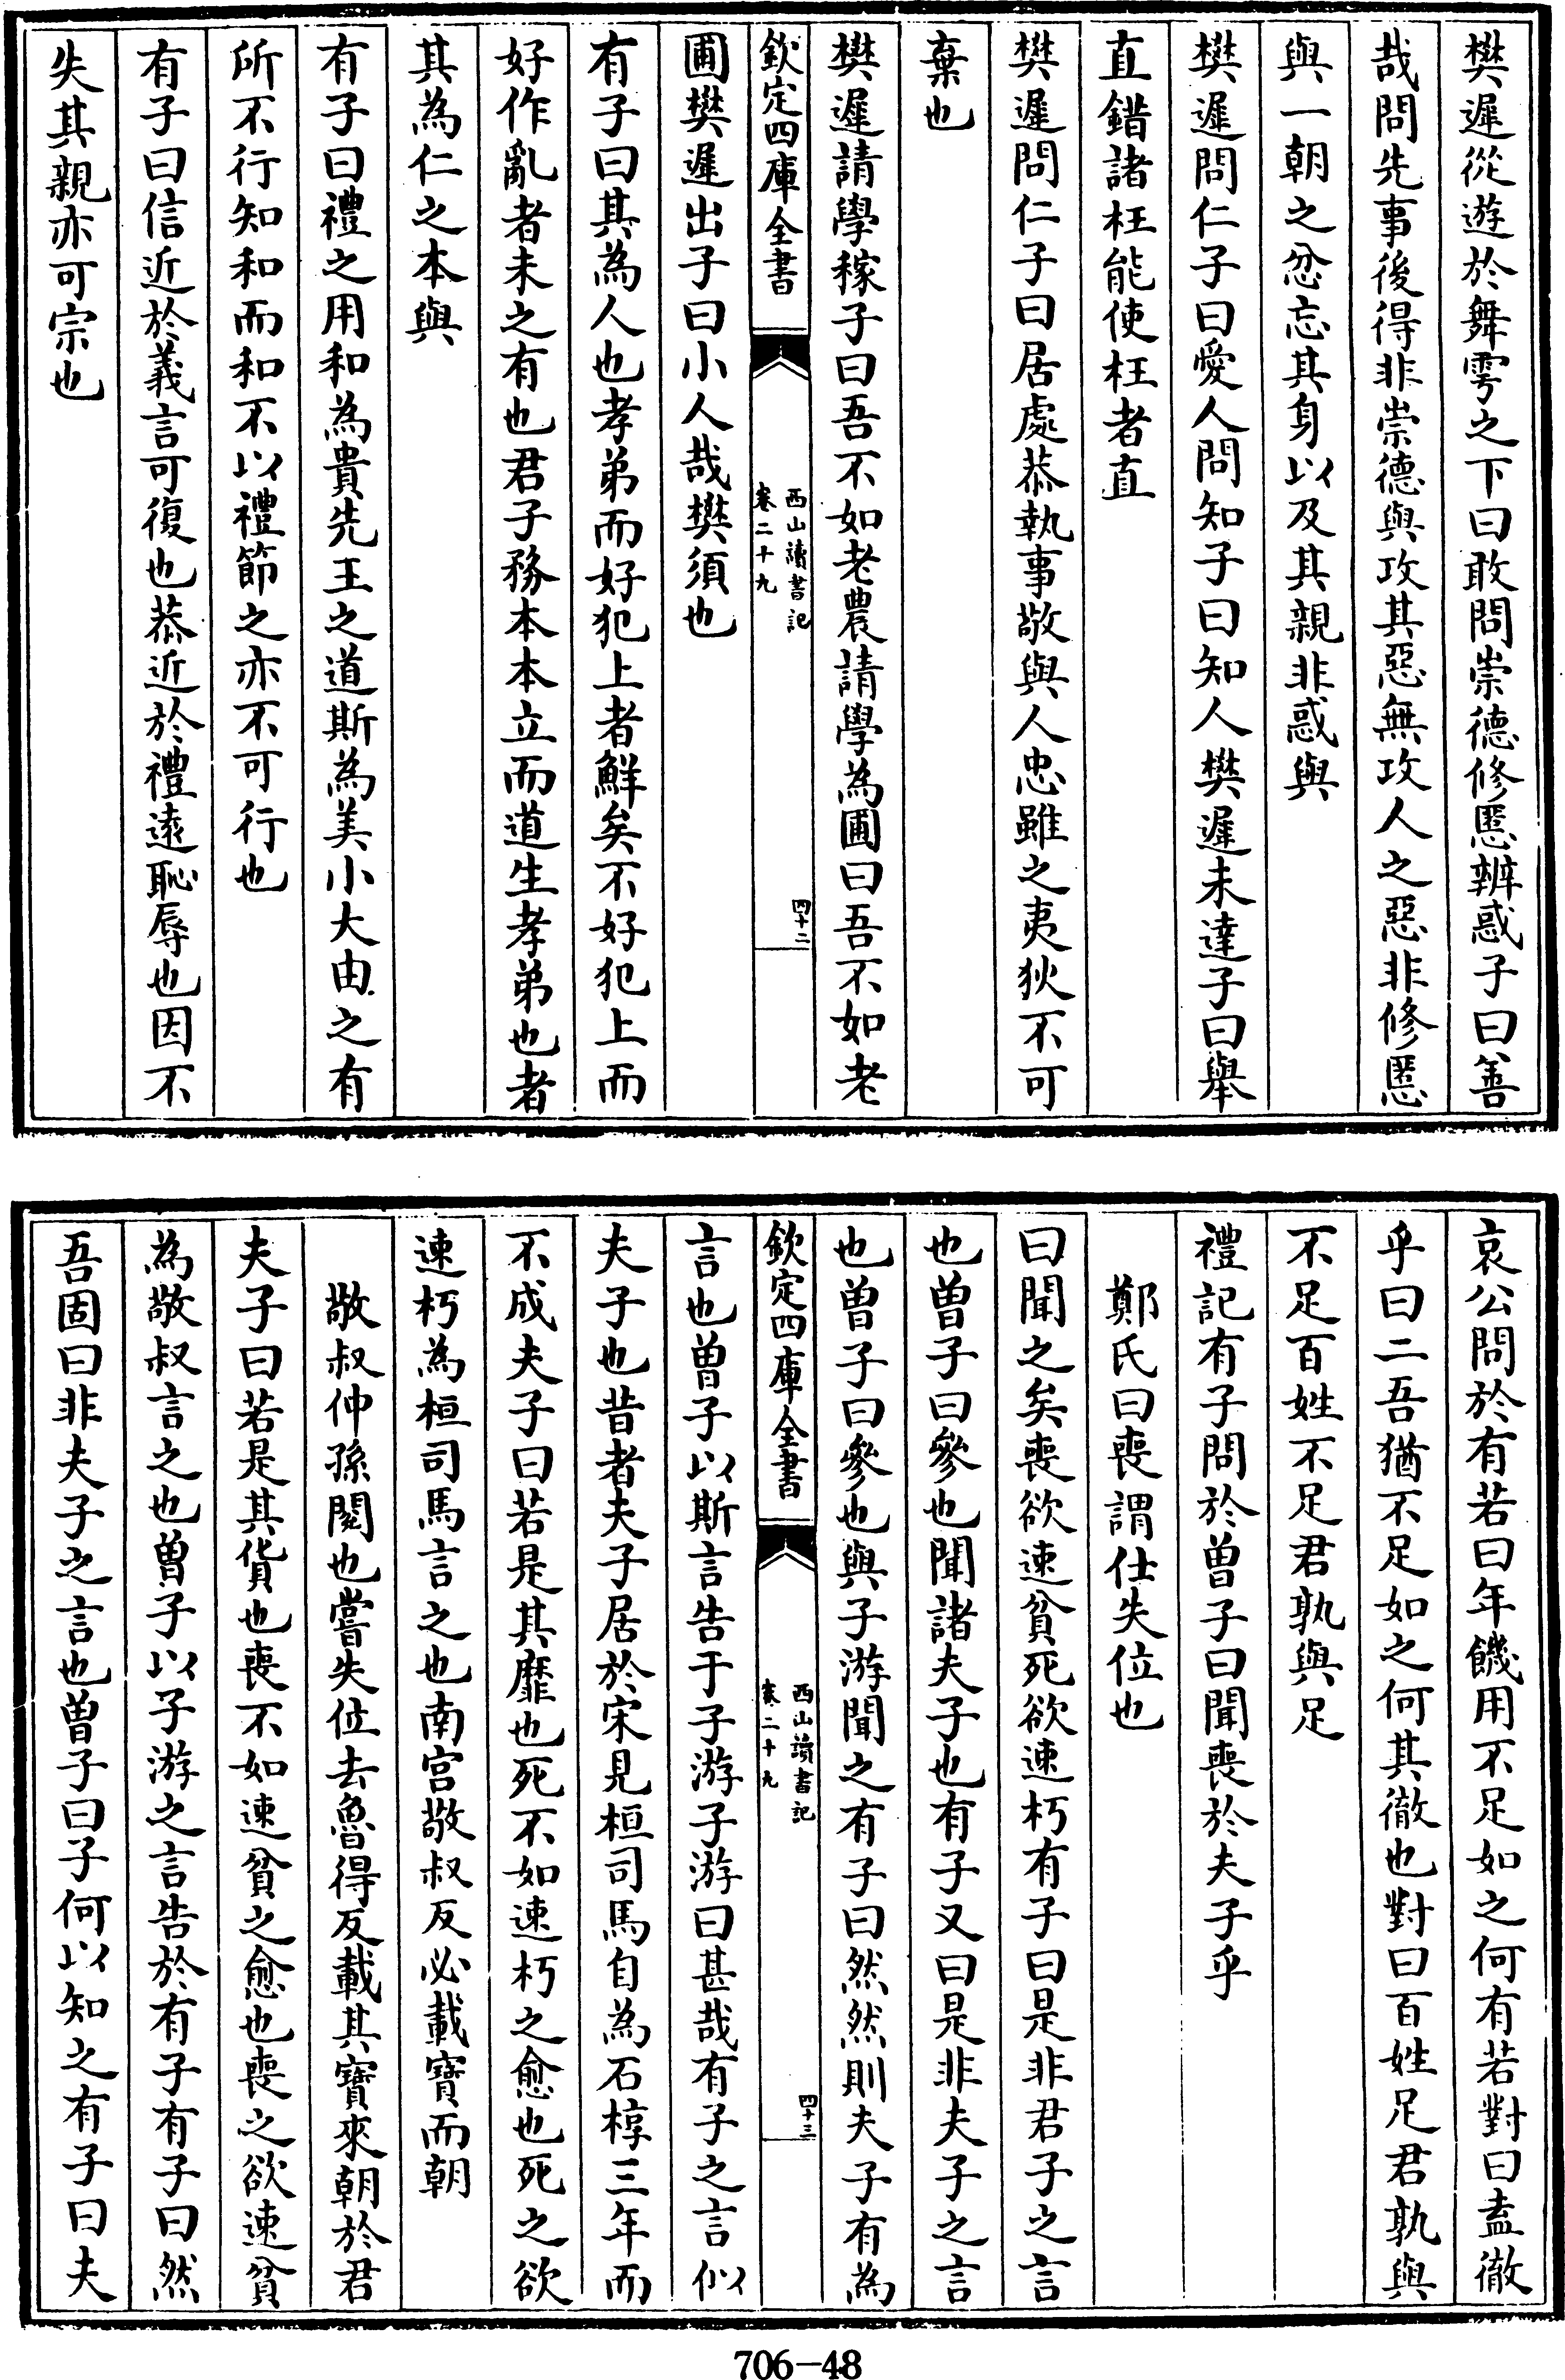 樊遲從遊於舞雩之下曰敢問崇德修慝辨惑子曰善
哉問先事後得非崇德與攻其惡無攻人之惡非修慝
與一朝之忿忘其身以及其親非惑與
樊遲問仁子曰愛人問知子曰知人樊遲未達子曰舉
直錯諸枉能使枉者直
樊遲問仁子曰居處恭執事敬與人忠雖之夷狄不可
棄也
樊遲請學稼子曰吾不如老農請學為圃曰吾不如老
欽定四庫全書
西山讀書記
卷二十九
四十二
圃樊遲出子曰小人哉樊須也
有子曰其為人也孝弟而好犯上者鮮矣不好犯上而
好作亂者未之有也君子務本本立而道生孝弟也者
其為仁之本與
有子曰禮之用和為貴先王之道斯為美小大由之有
所不行知和而和不以禮節之亦不可行也
有子曰信近於義言可復也恭近於禮遠恥辱也因不
失其親亦可宗也
哀公問於有若曰年饑用不足如之何有若對曰盍徹
乎曰二吾猶不足如之何其徹也對曰百姓足君孰與
不足百姓不足君孰與足
禮記有子問於曽子曰聞喪於夫子乎
鄭氏曰喪謂仕失位也
曰聞之矣喪欲速貧死欲速朽有子曰是非君子之言
也曽子曰參也聞諸夫子也有子又曰是非夫子之言
也曽子曰參也與子游聞之有子曰然然則夫子有為
欽定四庫全書
西山讀書記
卷二十九
四十三
言也曽子以斯言告于子游子游曰甚哉有子之言似
夫子也昔者夫子居於宋見桓司馬自為石椁三年而
不成夫子曰若是其靡也死不如速朽之愈也死之欲
速朽為桓司馬言之也南宫敬叔反必載寶而朝
敬叔仲孫閱也嘗失位去魯得反載其寶來朝於君
夫子曰若是其貨也喪不如速貧之愈也喪之欲速貧
為敬叔言之也曽子以子游之言告於有子有子曰然
吾固曰非夫子之言也曽子曰子何以知之有子曰夫
706-48